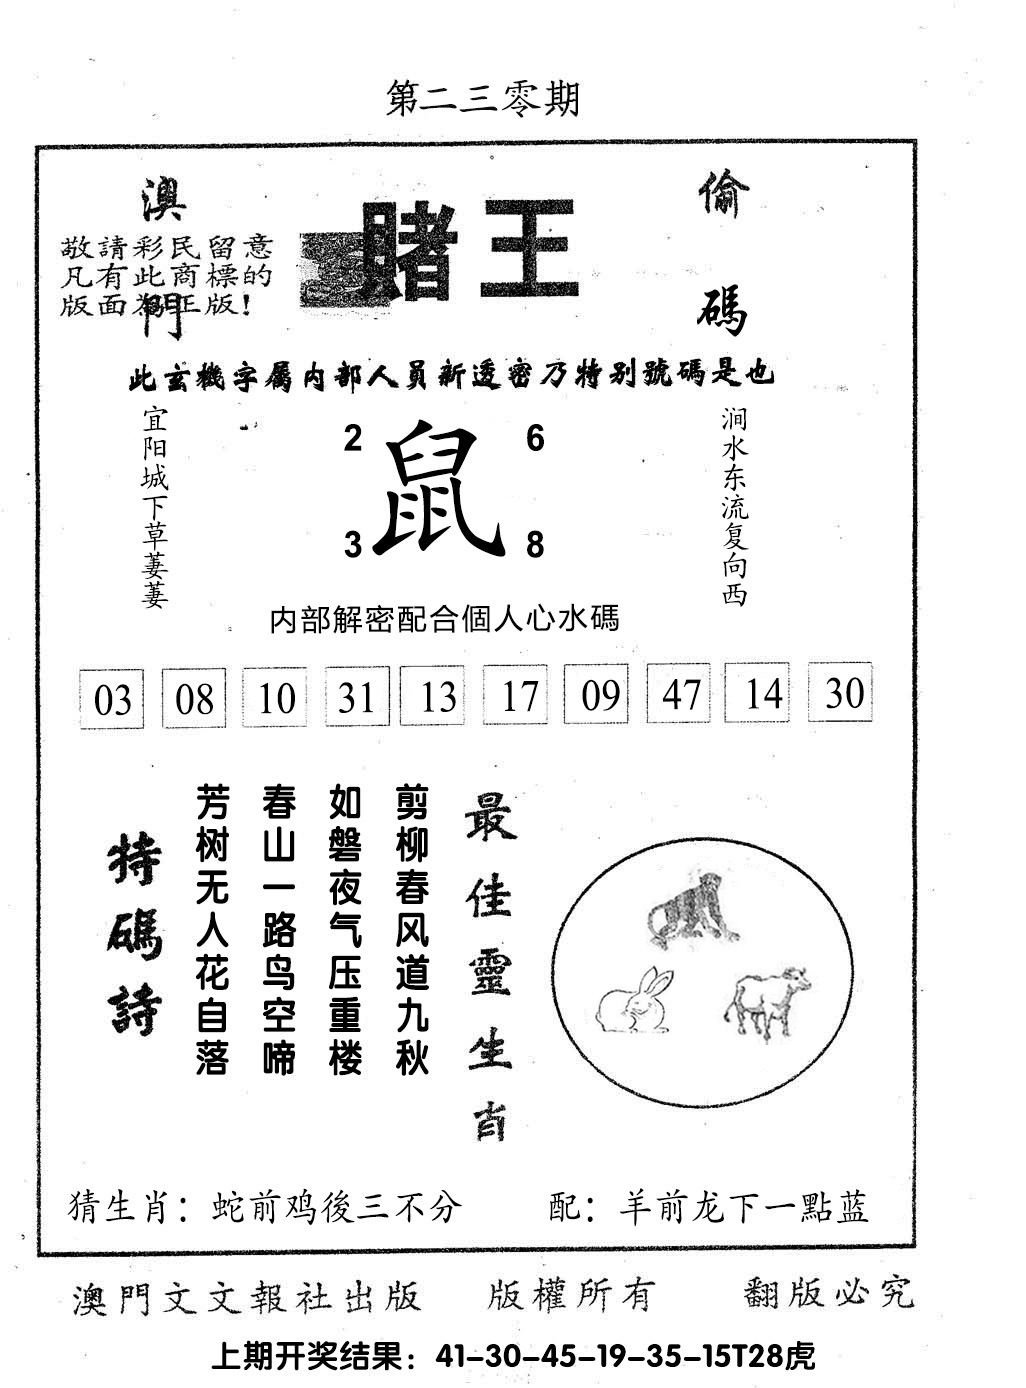 第二三零期
澳門
賭王
偷碼
敬請彩民留意
凡有此商標的
版面為正版！
此玄機字屬内部人員新透密乃特别號碼是也
宜阳城下草萋萋
2 6
鼠
3 8
涧水东流复向西
内部解密配合個人心水碼
03 08 10 31 13 17 09 47 14 30
特碼詩
芳树无人花自落
春山一路鸟空啼
如磐夜气压重楼
剪柳春风道九秋
最佳靈生肖
猜生肖：蛇前鸡後三不分
配：羊前龙下一點蓝
澳門文文報社出版 版權所有 翻版必究
上期开奖结果：41-30-45-19-35-15T28虎